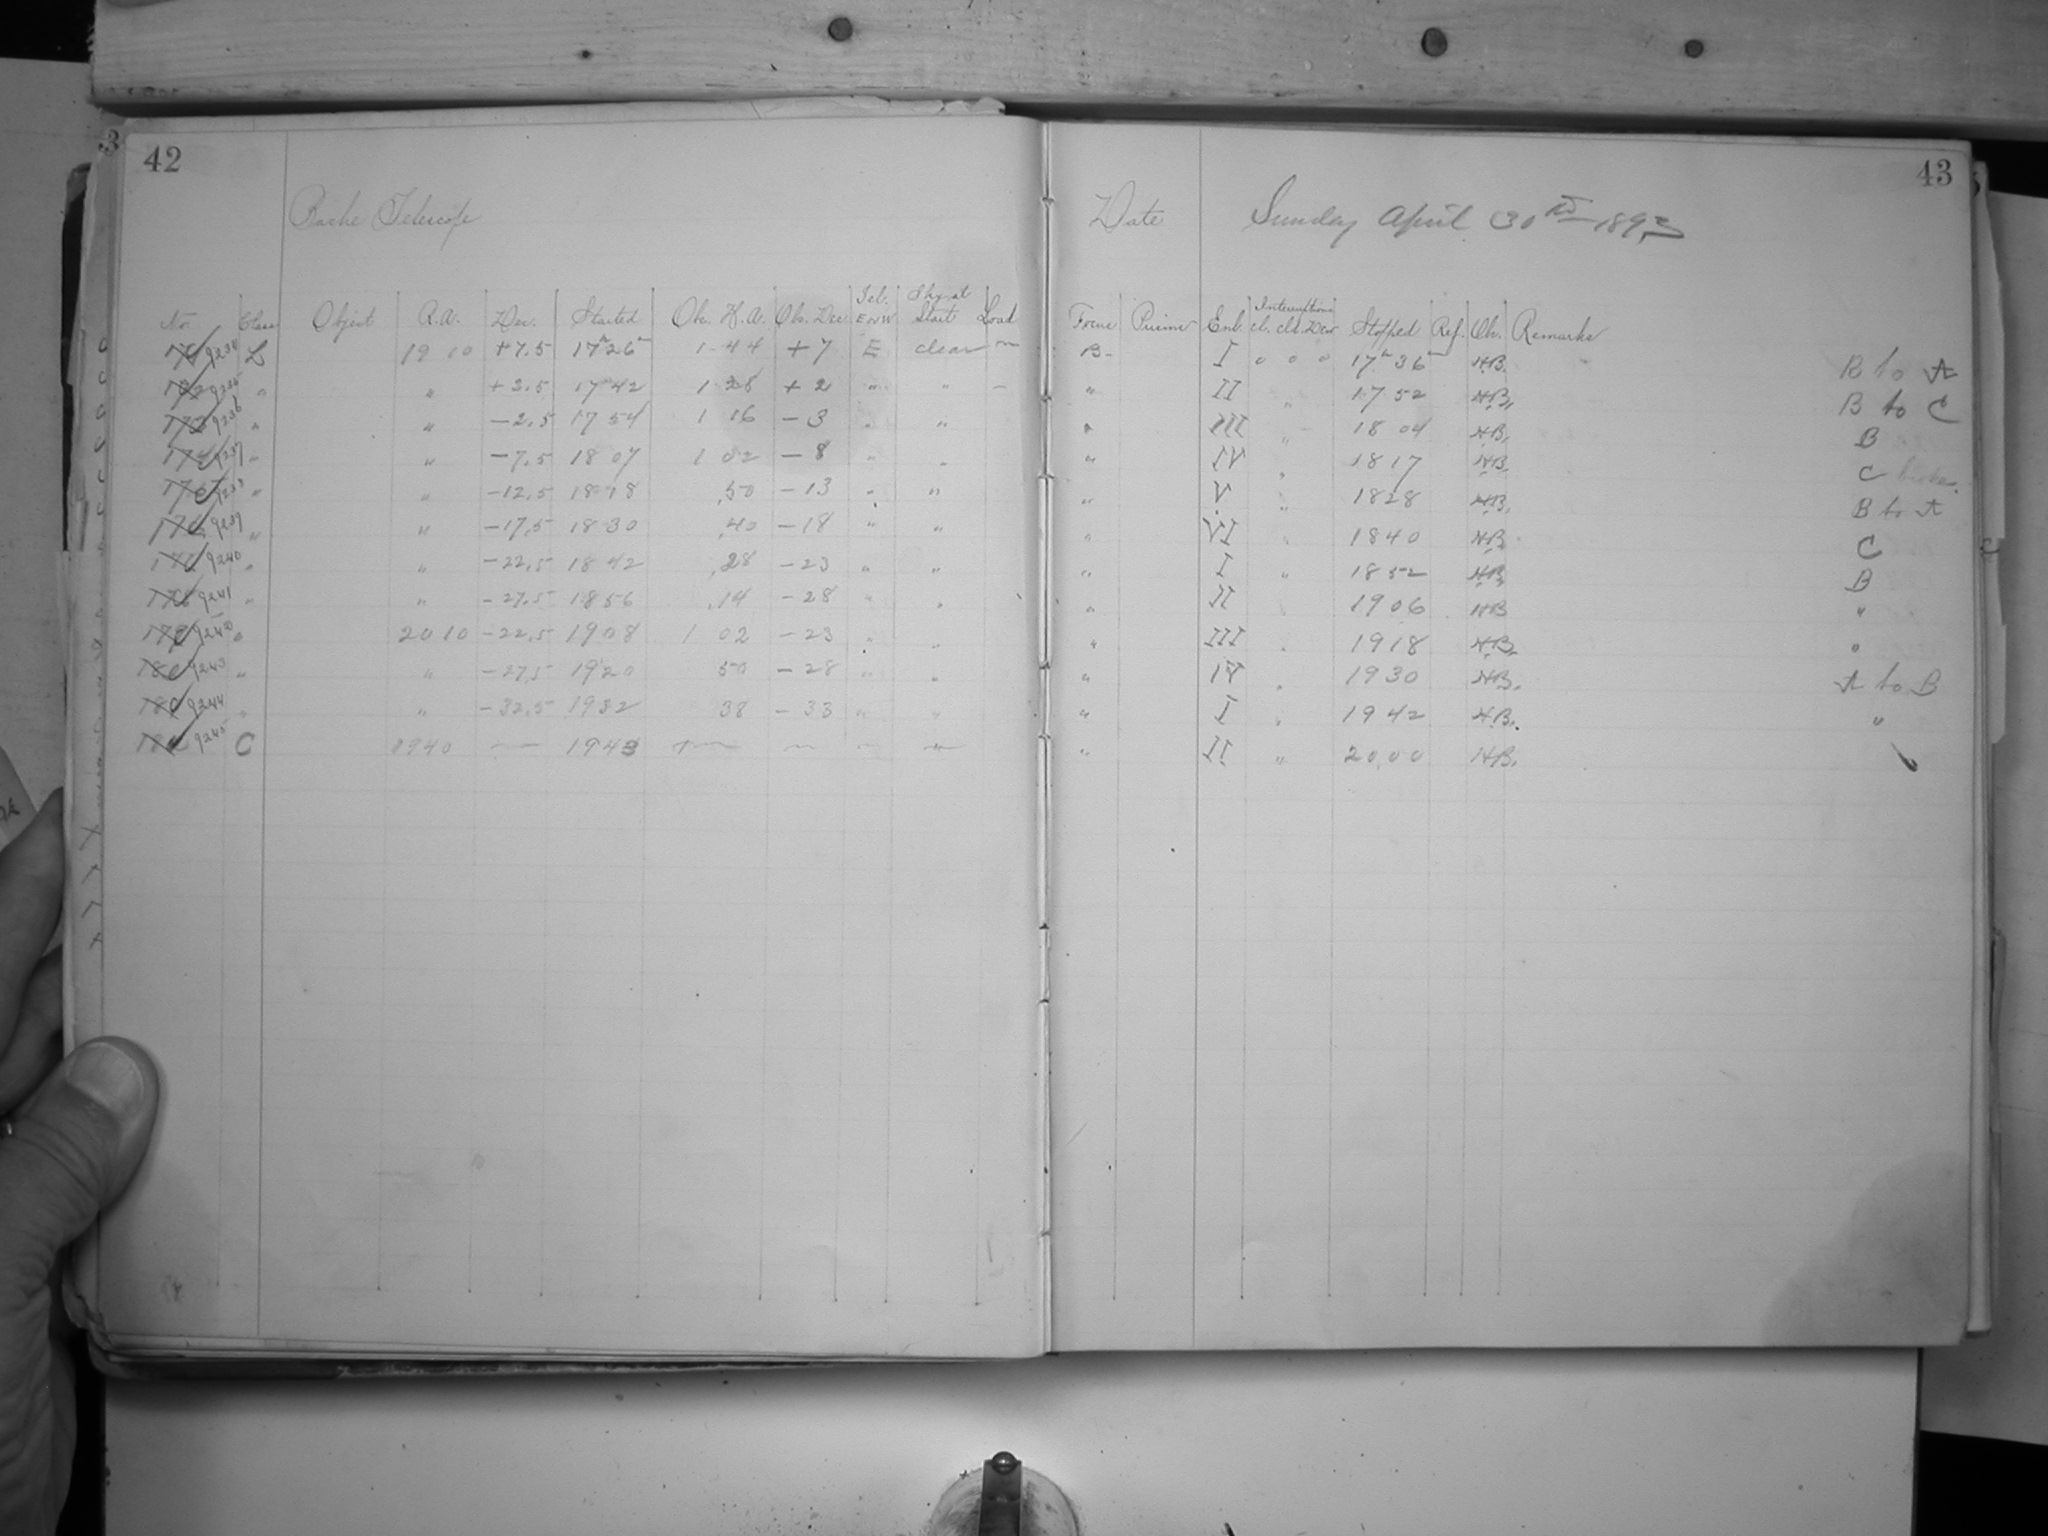 3
42
Bache Telescope
No. Class Object R.A. Dec. Started Ob. H.A. Ob. Dec. Tel. E or W Sky at Start Load
9234 L 19 10 +7.5 17h 26m 1 44 +7 E clear —
9235 " " +2.5 17 42 1 28 +2 " " –
9236 " " −2.5 17 54 1 16 −3 " "
9237 " " −7.5 18 07 1 02 −8 " "
9238 " " −12.5 18 18 .50 −13 " "
9239 " " −17.5 18 30 .40 −18 " "
9240 " " −22.5 18 42 .28 −23 " "
9241 " " −27.5 18 56 .14 −28 " "
9242 " 20 10 −22.5 19 08 1 02 −23 " "
9243 " " −27.5 19 20 50 −28 " "
9244 " " −32.5 19 32 38 −33 " "
9245 C 1940 — 1943 — — — "
43
Date Sunday April 30th 1893
Focus Prism Enl. Interruptions cl. cld. Dew Stopped Ref. Ob. Remarks
B– I 0 0 0 17h 36m H.B. B to A
" II " 17 52 H.B. B to C
" III " 18 04 H.B. B
" IV " 18 17 H.B. C broken.
" V " 18 28 H.B. B to A
" VI " 18 40 H.B. C
" I " 18 52 H.B. B
" II " 19 06 H.B "
" III " 19 18 H.B. "
" IV " 19 30 H.B. A to B
" I " 19 42 H.B. "
" II " 20 00 H.B.